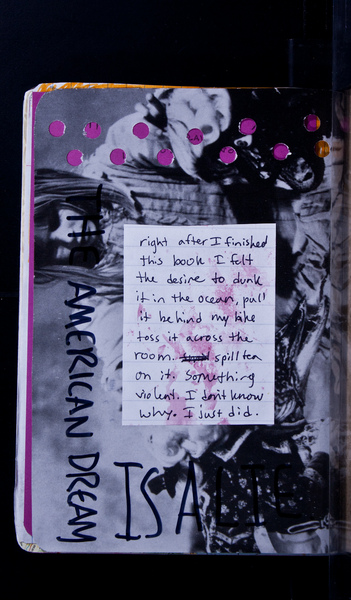 THE AMERICAN DREAM
IS A LIE
right after I finished
this book I felt
the desire to dunk
it in the ocean, pull
it behind my bike
toss it across the
room. spill tea
on it. Something
violent. I don't know
why. I just did.